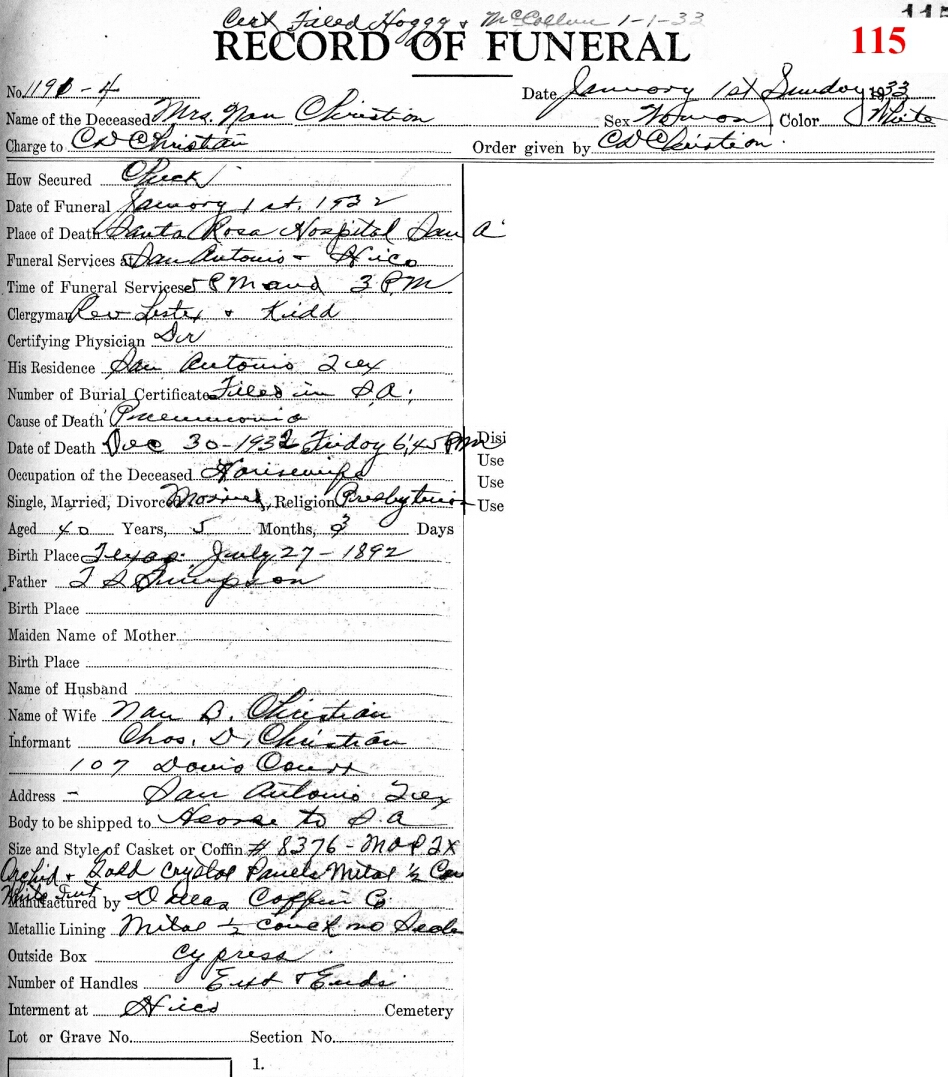 Cert Filed Hoggy & McCollum 1-1-33
115
RECORD OF FUNERAL
115
No. 1191-4 Date January 1st Sunday 1933
Name of the Deceased Mrs. Nan Christian Sex Woman Color White
Charge to CD Christian Order given by CD Christian.
How Secured Check
Date of Funeral January 1st, 1932
Place of Death Santa Rosa Hospital San A
Funeral Services at San Antonio - Hico
Time of Funeral Services 5 PM and 3 PM
Clergyman Rev Lester & Kidd
Certifying Physician Dr
His Residence San Antonio Tex
Number of Burial Certificate Filed in S.A.
Cause of Death Pneumonia
Date of Death Dec 30-1932 Friday 6,45 PM
Disi
Use
Occupation of the Deceased Housewife
Use
Single, Married, Divorced Married, Religion Presbyterian
Use
Aged 40 Years, 5 Months, 3 Days
Birth Place Texas. July 27-1892
Father T S Simpson
Birth Place
Maiden Name of Mother
Birth Place
Name of Husband
Name of Wife Nan B. Christian
Informant Chos. D, Christian
107 Davis Court
Address - San Antonio Tex
Body to be shipped to Hearse to S.A
Size and Style of Casket or Coffin # 8376 - MOP 2X
Orchid & Gold Crystal Panels Metal ½
Manufactured by Dallas Coffin Co
Metallic Lining Metal ½ Couch no Seale
Outside Box Cypress
Number of Handles Ext & Ends
Interment at Hico Cemetery
Lot or Grave No. Section No.
1.